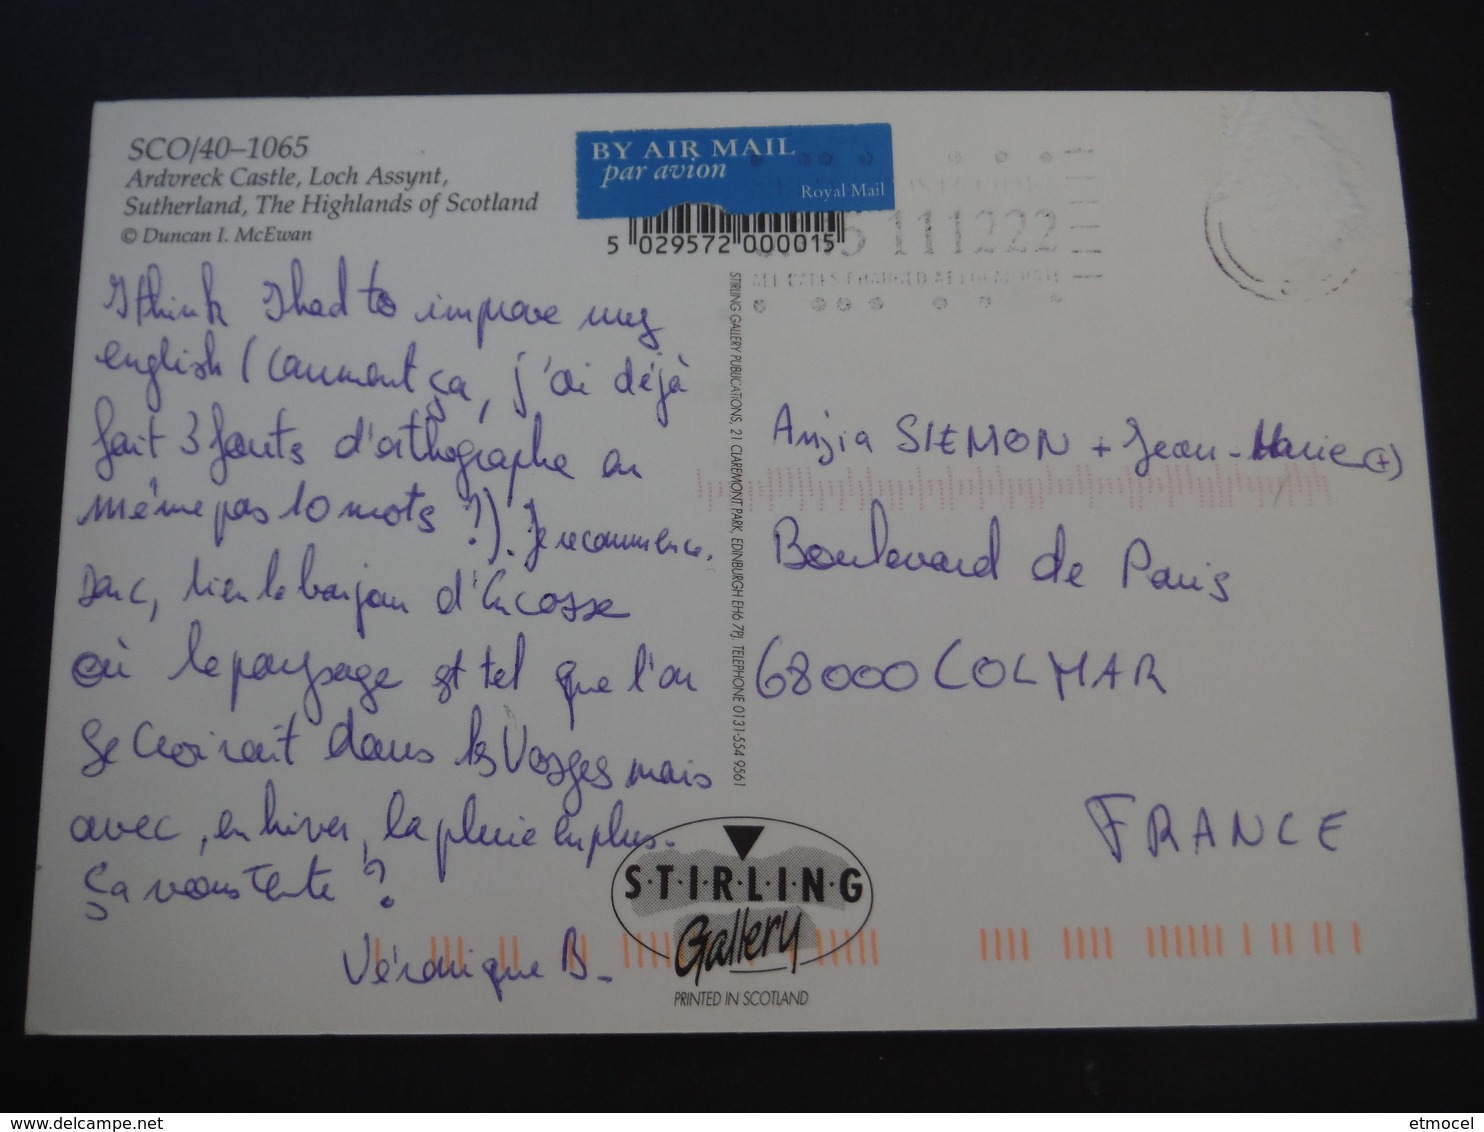 SCO/40–1065
Ardvreck Castle, Loch Assynt,
Sutherland, The Highlands of Scotland
© Duncan I. McEwan
BY AIR MAIL
par avion
Royal Mail
5 029572 000015
111222
I think I had to improve my
english (comment ça, j'ai déjà
fait 3 fauts d'orthographe en
même pas 10 mots ?). Je recommence.
Donc, bien le bonjour d'Encosse
où le paysage est tel que l'on
se croirait dans les Vosges mais
avec, en hiver, la pluie en plus.
Ça vous tente ?
Véronique B.
STIRLING GALLERY PUBLICATIONS, 21 CLAREMONT PARK, EDINBURGH EH6 7PJ. TELEPHONE 0131-554 9561
SIEMON + Jean-Marie (+)
Boulevard de Paris
68000 COLMAR
FRANCE
S·T·I·R·L·I·N·G
Gallery
PRINTED IN SCOTLAND
delcampe.net
etmocel